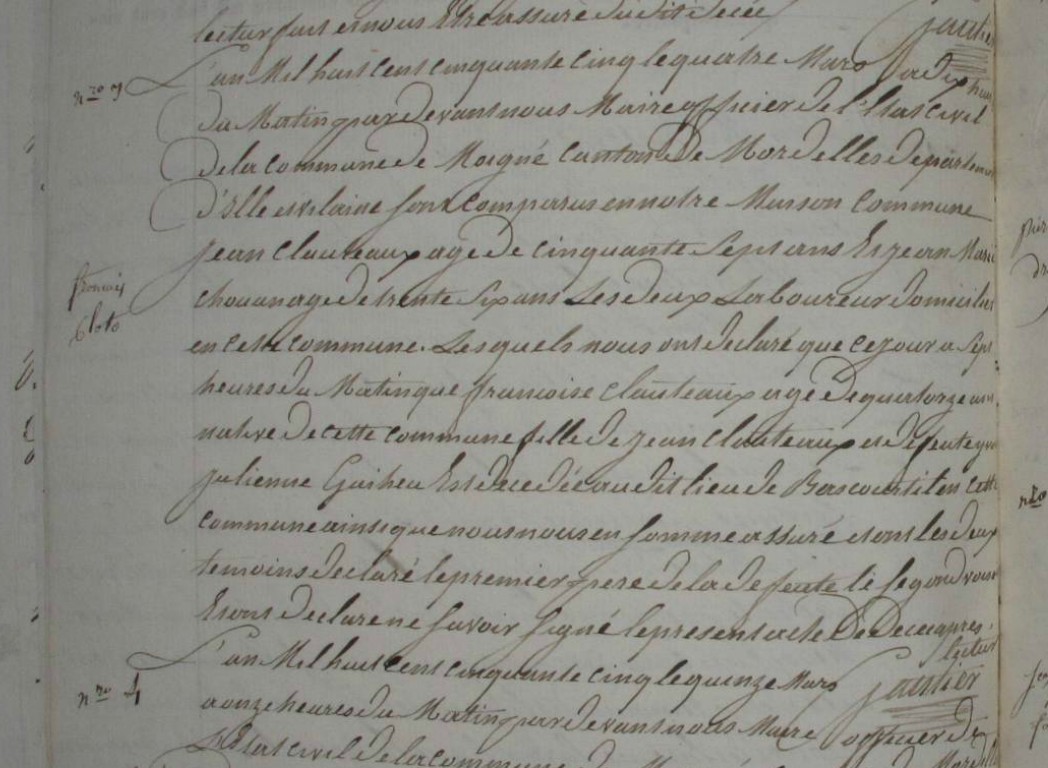 lecture fait et nous Etre assuré dudit décé
jautier
nro 3 L'an Mil huit Cent cinquante cinq le quatre Mars a dix heur
du Matin par devant nous Maire officier de l'Etat Civil
de la Commune de Moigné Canton de Mordelles departement
d'Ille et vilaine sont Comparus en notre Maison Commune
jean Clauteaux age de cinquante Sept ans Et jean Marie
chouan age de trente Six ans Les deux Laboureur domiciliés
en Cette Commune. Lesquels nous ont declaré que Ce jour a Sept
heures du Matin que francoise Clauteaux agé de quatorze ans
native de Cette Commune fille de jean Clauteaux et de feute
julienne Guiheu Est decedée au dit lieu de Bascourtil en Cette
Commune ainsi que nous nous en somme assuré et ont les deux
temoins declaré le premier pere de la defeute le segond voisin
Et ont declare ne savoir signé le present acte de dece apres
lecture
jautier
nro 4 L'an Mil huit Cent cinquante cinq le quinze Mars
a onze heures du Matin par devant nous Maire officier de
L'Etat Civil de la Commune de